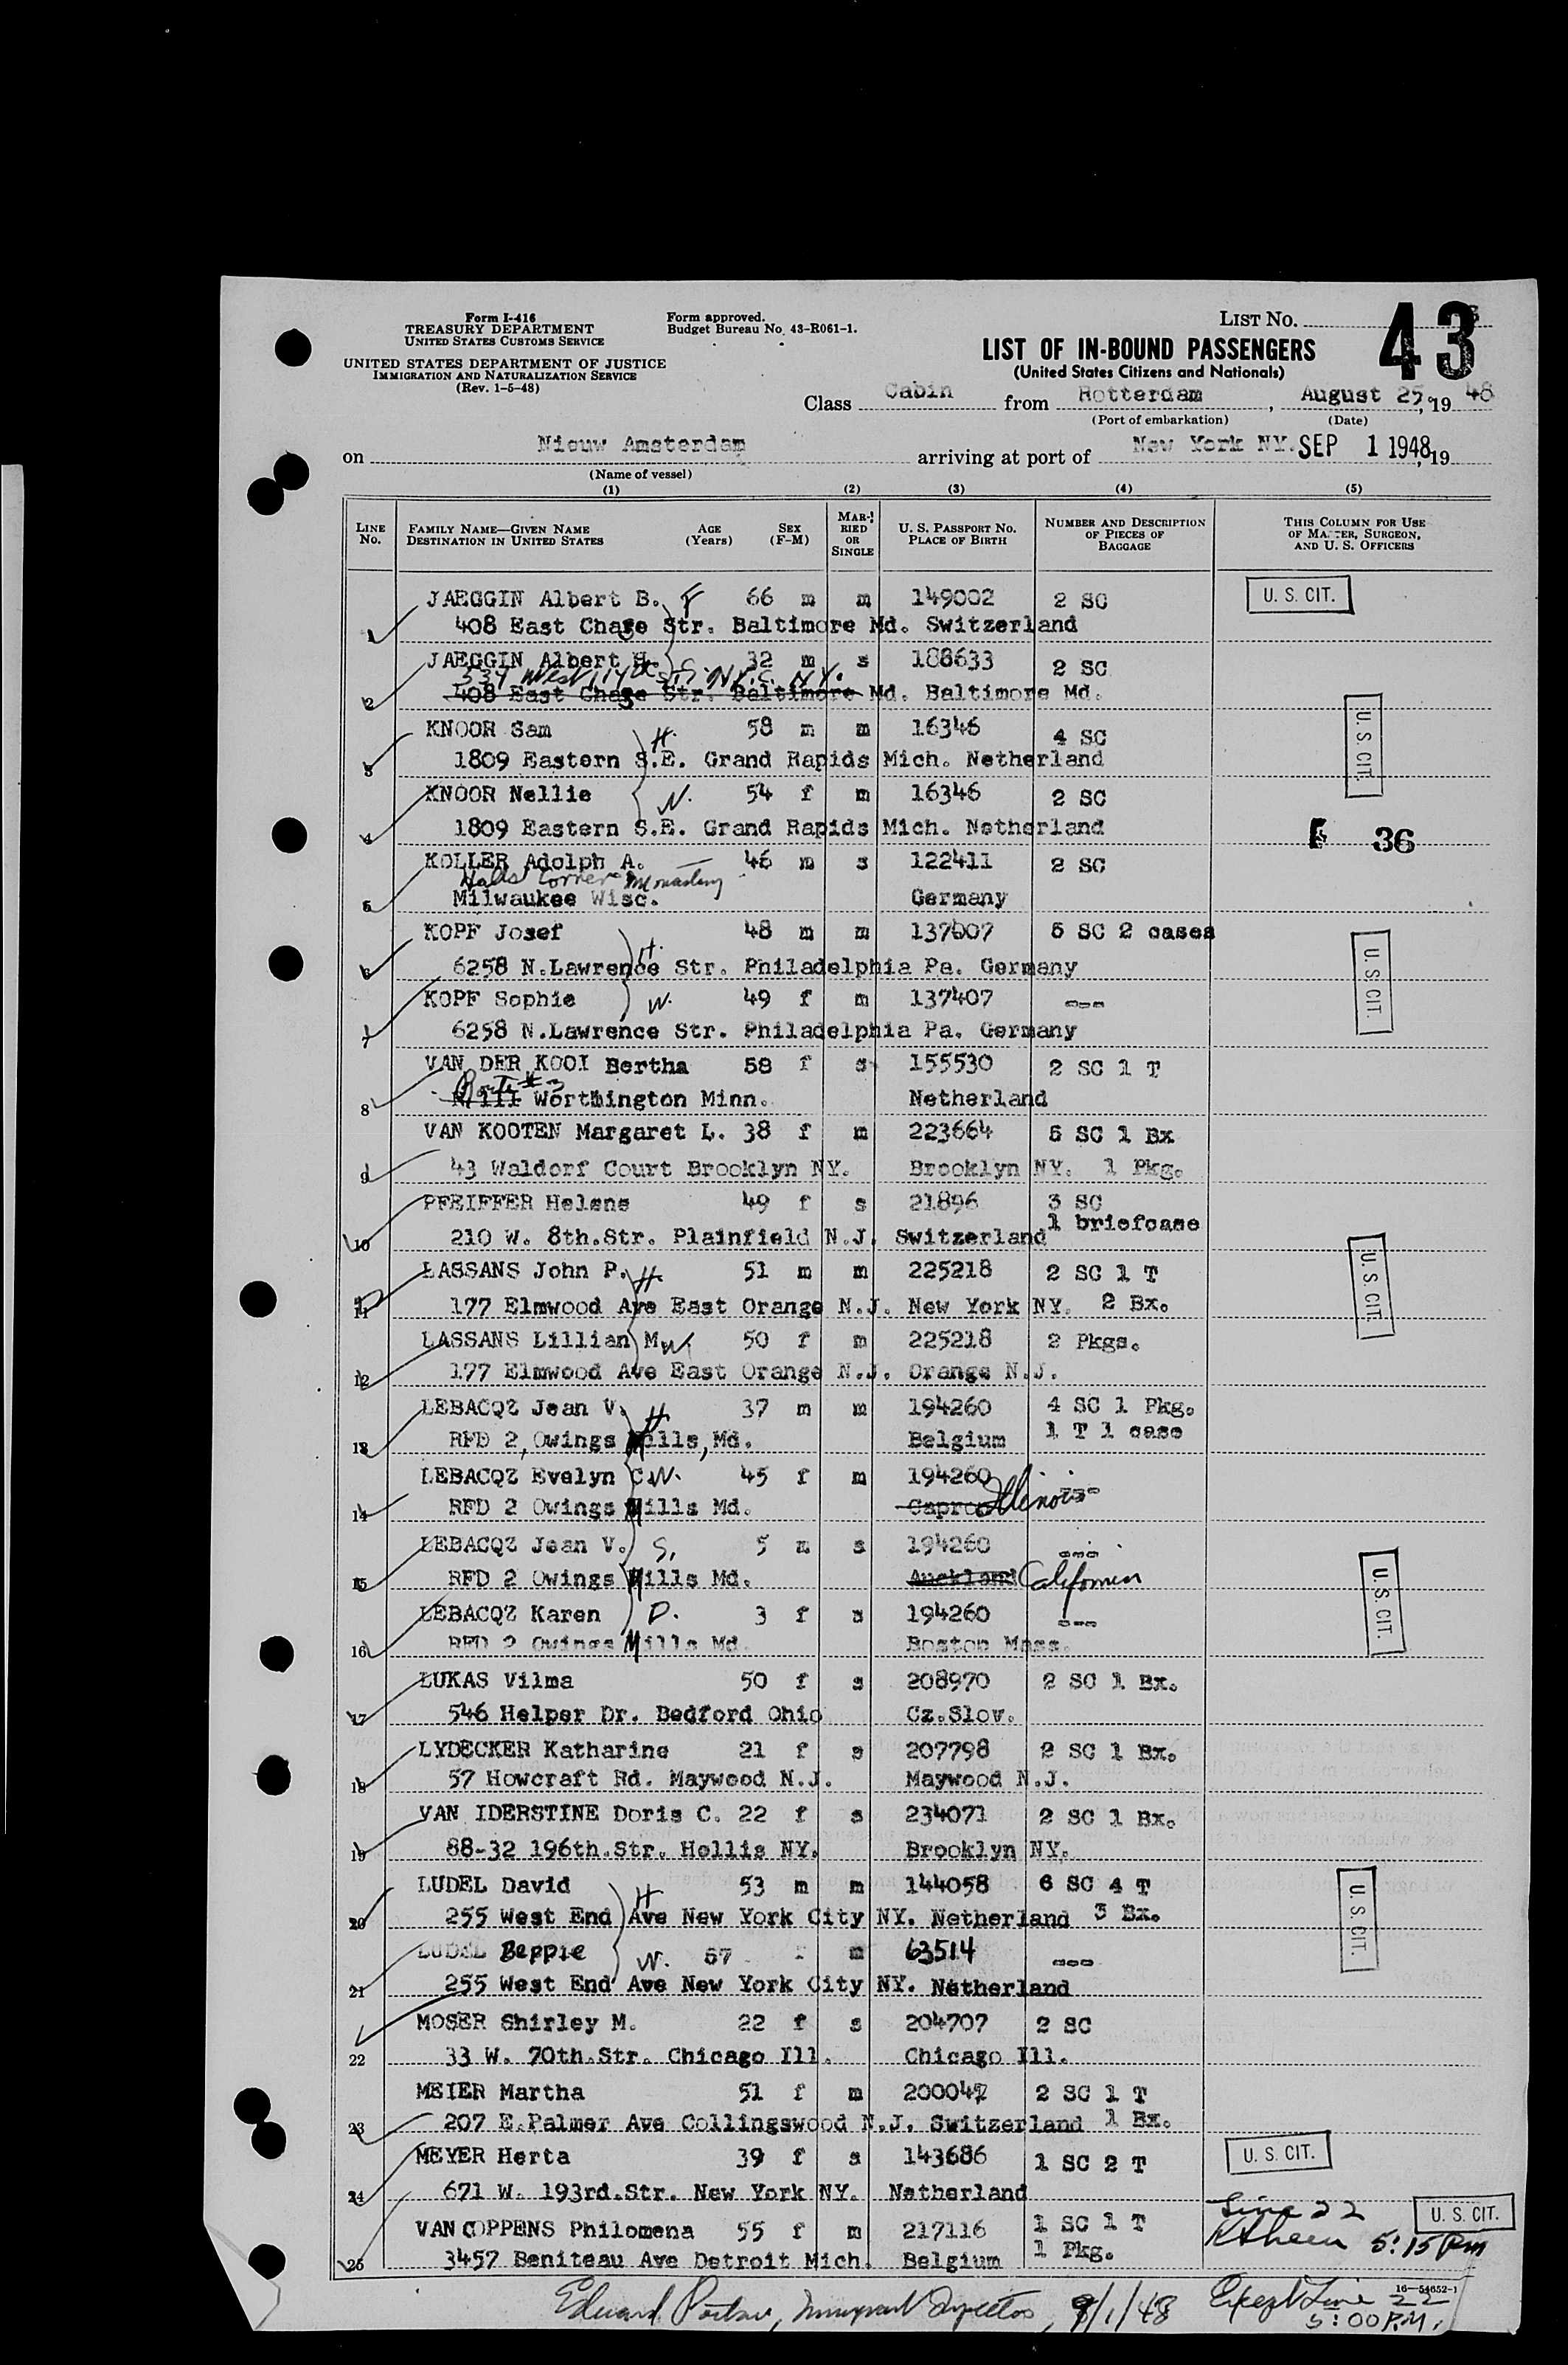 Form I-416
TREASURY DEPARTMENT
UNITED STATES CUSTOMS SERVICE
UNITED STATES DEPARTMENT OF JUSTICE
IMMIGRATION AND NATURALIZATION SERVICE
(Rev. 1-5-48)
Form approved.
Budget Bureau No. 43-R061-1.
LIST NO. 43
LIST OF IN-BOUND PASSENGERS
(United States Citizens and Nationals)
Class Cabin from Rotterdam, August 25, 1948
(Port of embarkation) (Date)
on Nieuw Amsterdam arriving at port of New York NY. SEP 1 1948, 19
(Name of vessel)
(1) (2) (3) (4) (5)
LINE No. FAMILY NAME—GIVEN NAME DESTINATION IN UNITED STATES AGE (Years) SEX (F-M) MARRIED OR SINGLE U. S. PASSPORT NO. PLACE OF BIRTH NUMBER AND DESCRIPTION OF PIECES OF BAGGAGE THIS COLUMN FOR USE OF MASTER, SURGEON, AND U. S. OFFICERS
JAEGGIN Albert B. F 66 m m 149002 2 SC U. S. CIT.
1 408 East Chase Str. Baltimore Md. Switzerland
JAEGGIN Albert H. S. 32 m s 188633 2 SC
534 West 114th St. N.Y.C. N.Y.
2 408 East Chase Str. Baltimore Md. Baltimore Md.
KNOOR Sam H. 58 m m 16346 4 SC U. S. CIT.
3 1809 Eastern S.E. Grand Rapids Mich. Netherland
KNOOR Nellie W. 54 f m 16346 2 SC
4 1809 Eastern S.E. Grand Rapids Mich. Netherland 36
KOLLER Adolph A. 46 m s 122411 2 SC
Hales Corner Monastery
5 Milwaukee Wisc. Germany
KOPF Josef H. 48 m m 137407 5 SC 2 cases U. S. CIT.
6 6258 N.Lawrence Str. Philadelphia Pa. Germany
KOPF Sophie W. 49 f m 137407 ---
7 6258 N.Lawrence Str. Philadelphia Pa. Germany
VAN DER KOOI Bertha 58 f s 155530 2 SC 1 T
8 Worthington Minn. Netherland
VAN KOOTEN Margaret L. 38 f m 223664 5 SC 1 Bx
9 43 Waldorf Court Brooklyn NY. Brooklyn NY. 1 Pkg.
PFEIFFER Helene 49 f s 21896 3 SC
1 briefcase
10 210 W. 8th.Str. Plainfield N.J. Switzerland
LASSANS John P. H. 51 m m 225218 2 SC 1 T U. S. CIT.
11 177 Elmwood Ave East Orange N.J. New York NY. 2 Bx.
LASSANS Lillian M W. 50 f m 225218 2 Pkgs.
12 177 Elmwood Ave East Orange N.J. Orange N.J.
LEBACQZ Jean V. H. 37 m m 194260 4 SC 1 Pkg.
13 RFD 2, Owings Mills, Md. Belgium 1 T 1 case
LEBACQZ Evelyn C. W. 45 f m 194260 ---
14 RFD 2 Owings Mills Md. Illinois
LEBACQZ Jean V. S. 5 m s 194260 ---
15 RFD 2 Owings Mills Md. Auckland California
LEBACQZ Karen D. 3 f s 194260 --- U.S.CIT.
16 RFD 2 Owings Mills Md. Boston Mass.
LUKAS Vilma 50 f s 208970 2 SC 1 Bx.
17 546 Helper Dr. Bedford Ohio Cz.Slov.
LYDECKER Katharine 21 f s 207798 2 SC 1 Bx.
18 57 Howcraft Rd. Maywood N.J. Maywood N.J.
VAN IDERSTINE Doris C. 22 f s 234071 2 SC 1 Bx.
19 88-32 196th.Str. Hollis NY. Brooklyn NY.
LUDEL David H 53 m m 144058 6 SC 4 T U. S. CIT.
20 255 West End Ave New York City NY. Netherland 3 Bx.
LUDEL Beppie W. 57 f m 63514 ---
21 255 West End Ave New York City NY. Netherland
MOSER Shirley M. 22 f s 204707 2 SC
22 33 W. 70th.Str. Chicago Ill. Chicago Ill.
MEIER Martha 51 f m 200047 2 SC 1 T
23 207 E.Palmer Ave Collingswood N.J. Switzerland 1 Bx.
MEYER Herta 39 f s 143686 1 SC 2 T U. S. CIT.
24 671 W. 193rd.Str. New York NY. Netherland
Line 22 U. S. CIT.
VAN COPPENS Philomena 55 f m 217116 1 SC 1 T 5:15 PM
25 3457 Beniteau Ave Detroit Mich. Belgium 1 Pkg.
16—54652-1
Edward, Immigrant Inspector, 9/1/48 Except Line 22
5:00 P.M.